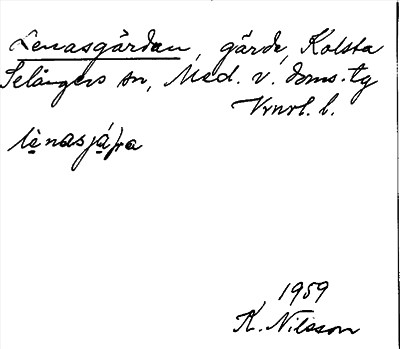 Lenasgärdan, gärde, Kolsta
Selångers sn, Med. v. doms. tg
Vrnrl. l.
lènasjáṛa
1959
K. Nilsson